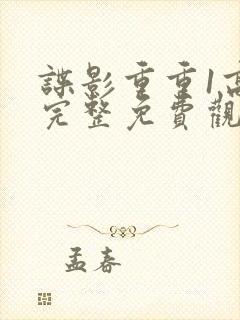 諜影重重1高
完整免費觀
孟春